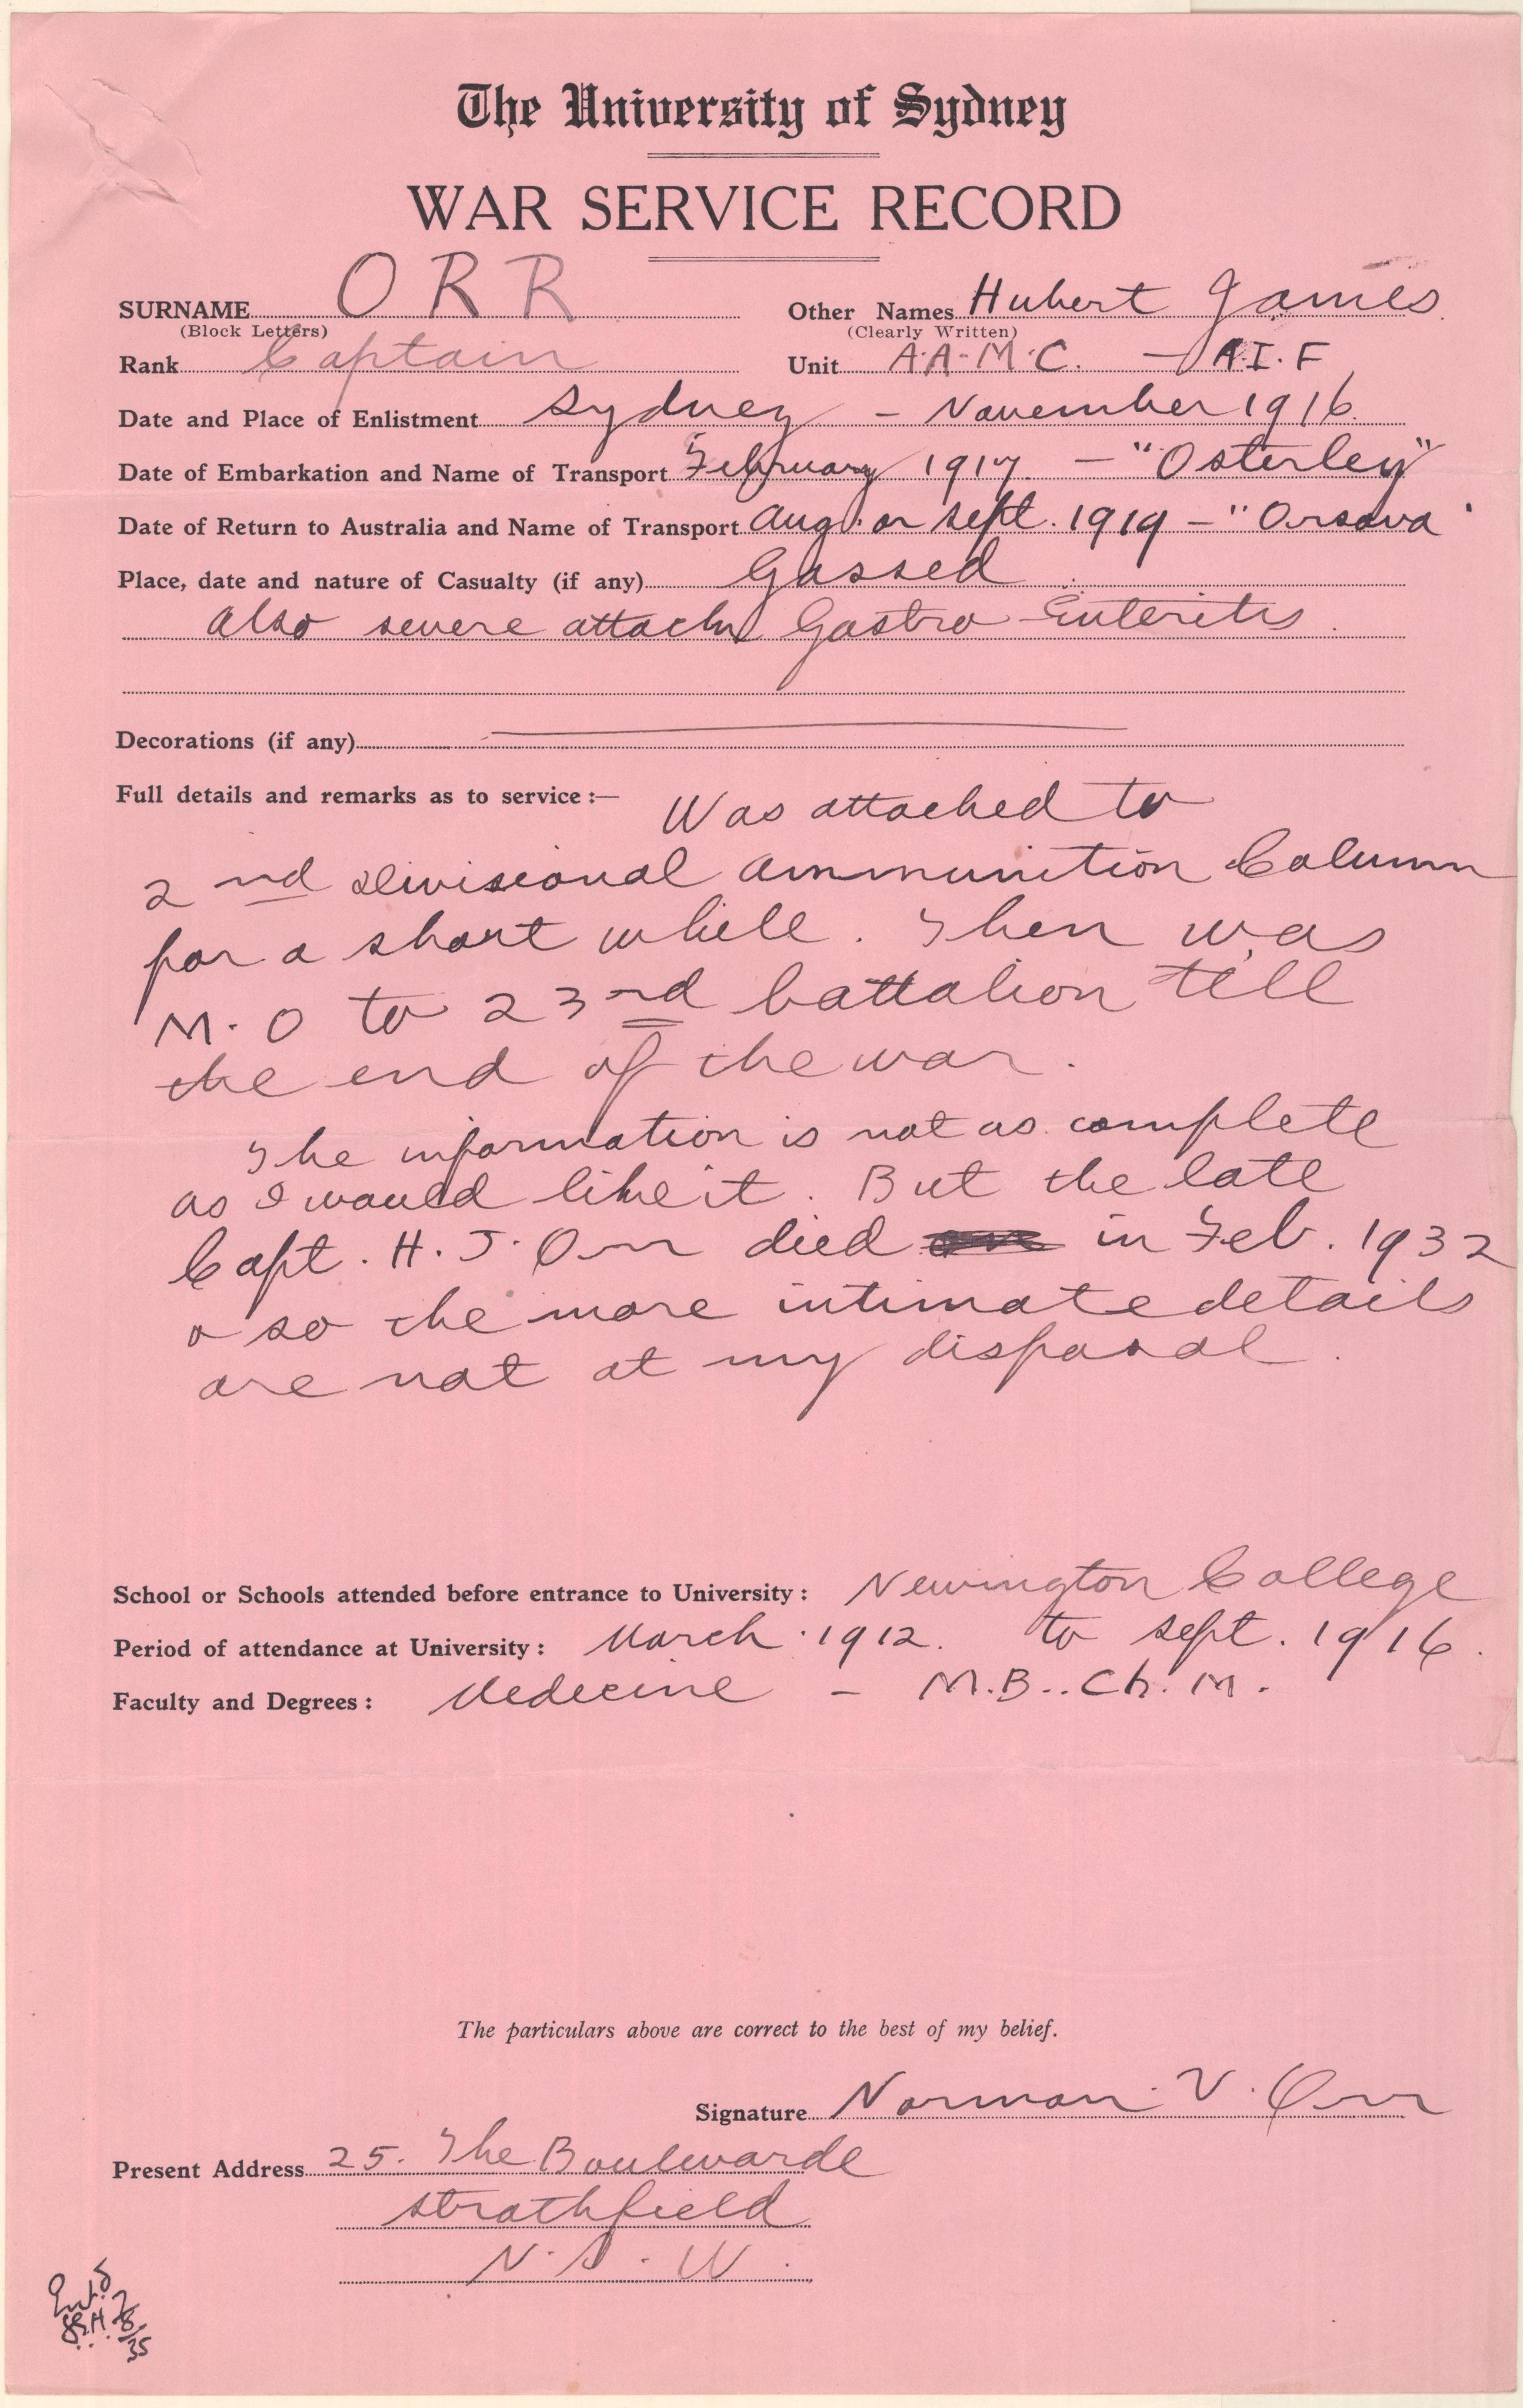 The University of Sydney
WAR SERVICE RECORD
SURNAME ORR Other Names Hubert James
(Block Letters) (Clearly Written)
Rank Captain Unit A.A.M.C. — A.I.F
Date and Place of Enlistment Sydney - November 1916.
Date of Embarkation and Name of Transport February 1917. - "Osterley"
Date of Return to Australia and Name of Transport Aug. or Sept. 1919 - "Orsova"
Place, date and nature of Casualty (if any) Gassed
Also severe attack Gastro Enteritis.
Decorations (if any)
Full details and remarks as to service :— Was attached to
2nd Divisional Ammunition Column
for a short while. Then was
M.O to 23rd battalion till
the end of the war.
The information is not as complete
as I would like it. But the late
Capt. H. J. Orr died in Feb. 1932
& so the more intimate details
are not at my disposal.
School or Schools attended before entrance to University : Newington College
Period of attendance at University : March. 1912. to Sept. 1916.
Faculty and Degrees : Medecine - M.B.. Ch. M.
The particulars above are correct to the best of my belief.
Signature Norman. V. Orr
Present Address 25. The Boulevarde
Strathfield
N.S.W.
Ent.d
7/8/35